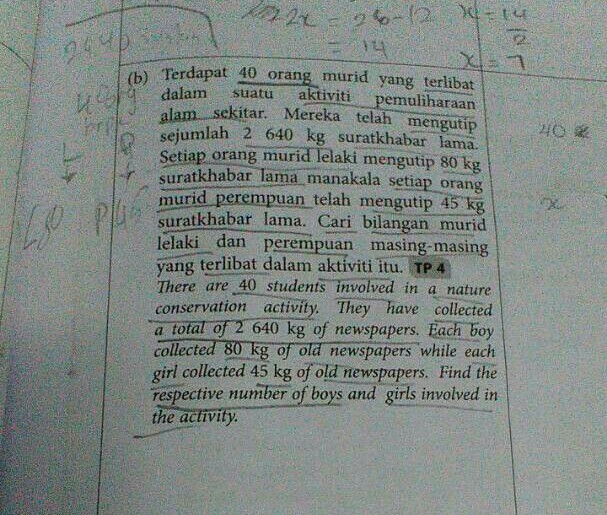 22x = 26-12
= 14
x = 14
2
x = 7
(b) Terdapat 40 orang murid yang terlibat
dalam suatu aktiviti pemuliharaan
alam sekitar. Mereka telah mengutip
sejumlah 2 640 kg suratkhabar lama.
Setiap orang murid lelaki mengutip 80 kg
suratkhabar lama manakala setiap orang
murid perempuan telah mengutip 45 kg
suratkhabar lama. Cari bilangan murid
lelaki dan perempuan masing-masing
yang terlibat dalam aktiviti itu. TP 4
There are 40 students involved in a nature
conservation activity. They have collected
a total of 2 640 kg of newspapers. Each boy
collected 80 kg of old newspapers while each
girl collected 45 kg of old newspapers. Find the
respective number of boys and girls involved in
the activity.
L80 P45
40
x